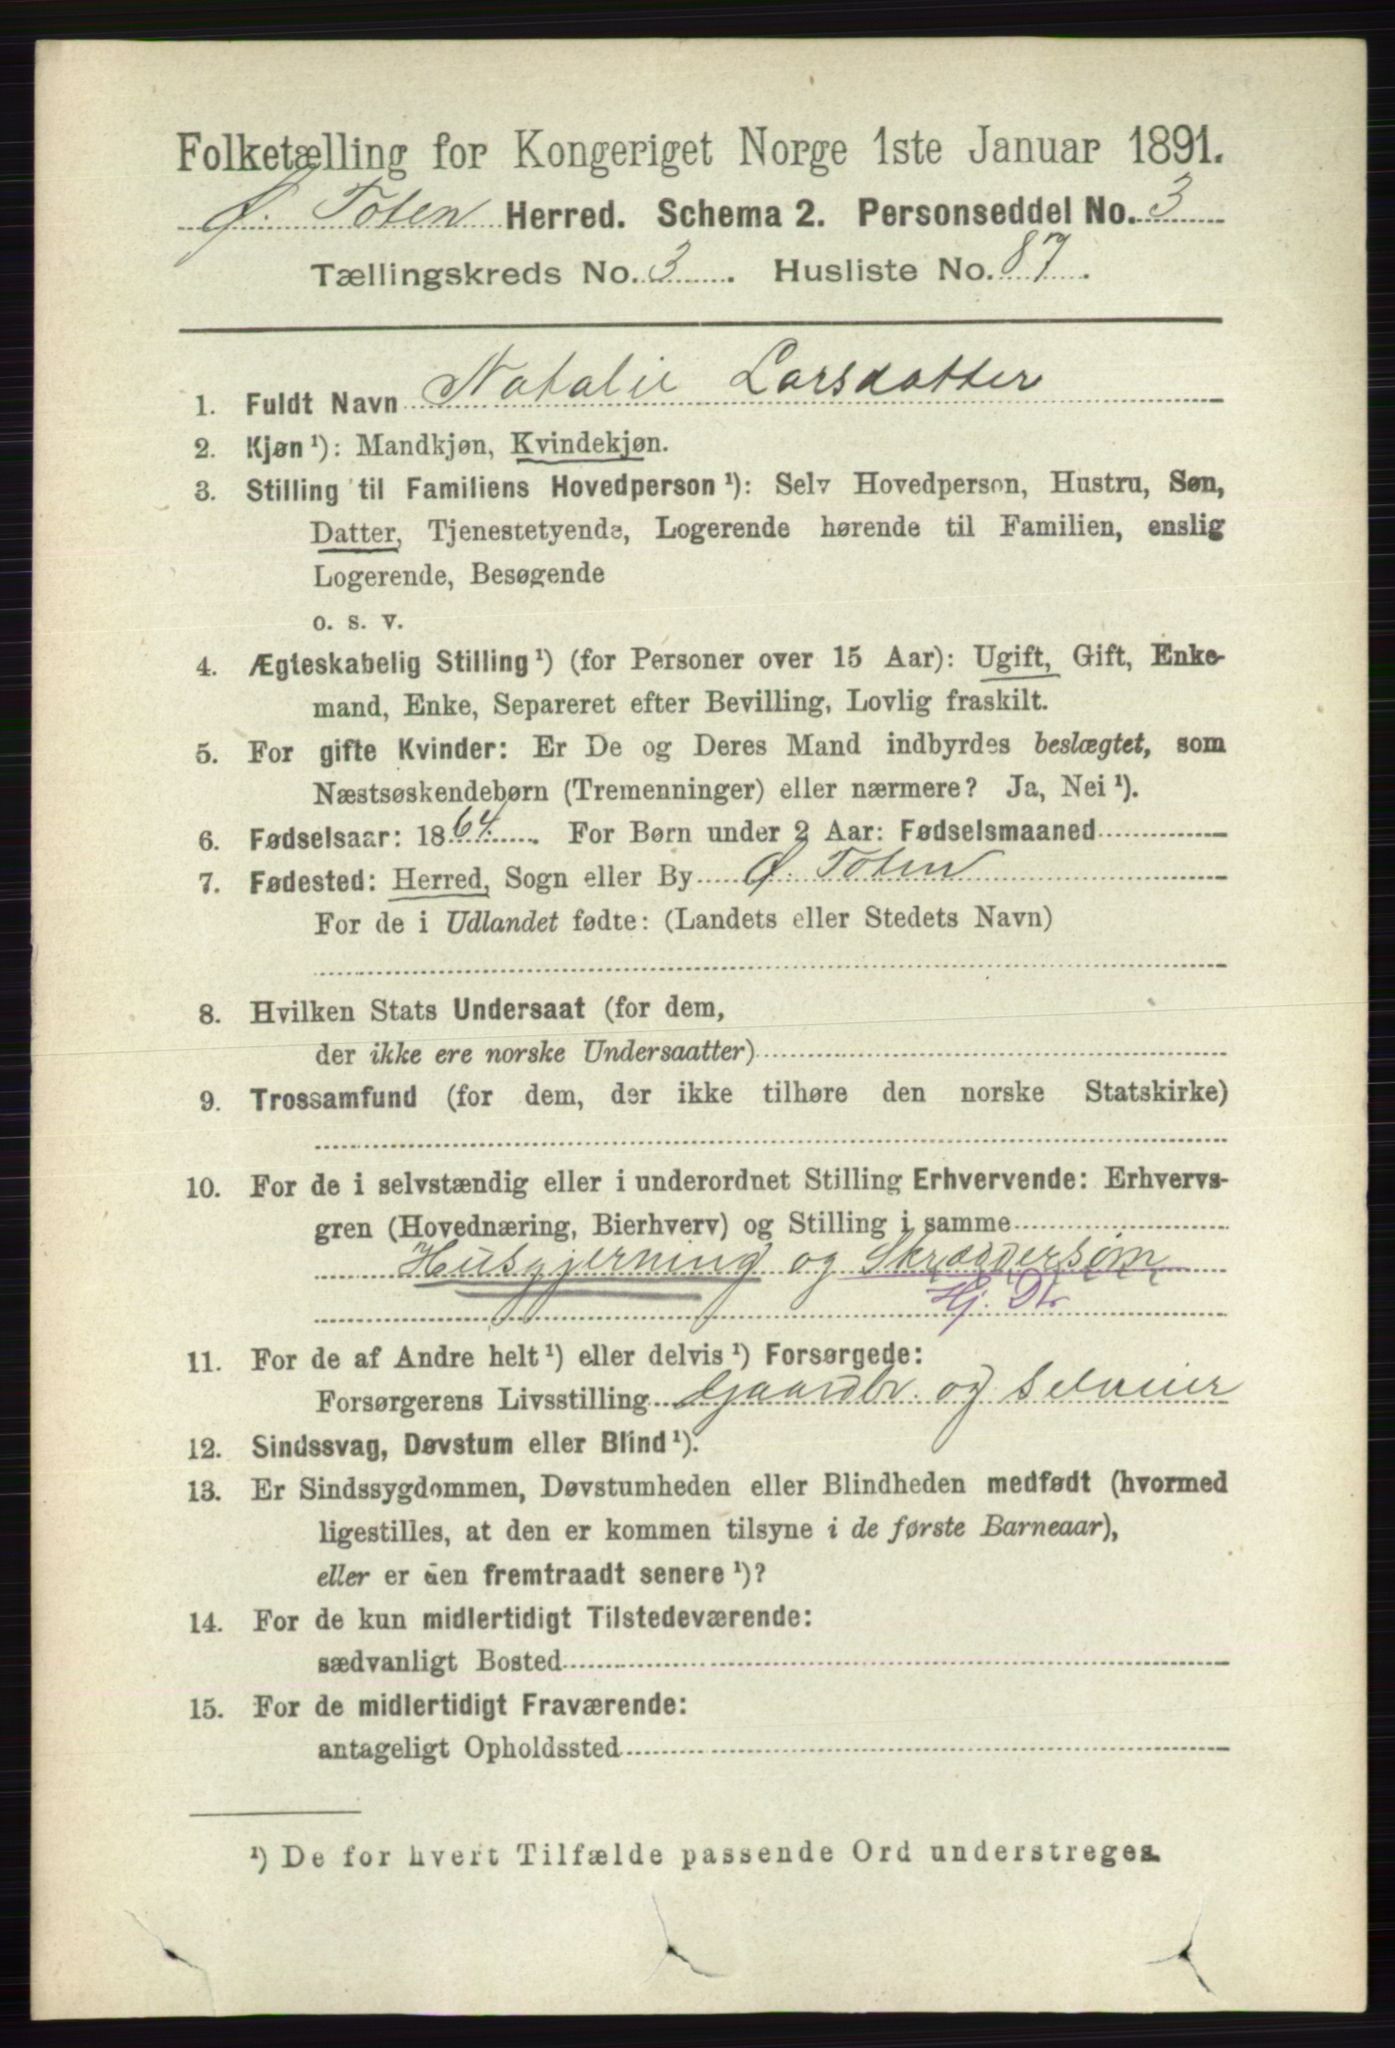 Folketælling for Kongeriget Norge 1ste Januar 1891.
Ø. Toten Herred. Schema 2. Personseddel No. 3
Tællingskreds No. 3. Husliste No. 87.
1. Fuldt Navn Natalie Larsdatter
2. Kjøn¹): Mandkjøn, Kvindekjøn.
3. Stilling til Familiens Hovedperson¹): Selv Hovedperson, Hustru, Søn,
Datter, Tjenestetyende, Logerende hørende til Familien, enslig
Logerende, Besøgende
o. s. v.
4. Ægteskabelig Stilling¹) (for Personer over 15 Aar): Ugift, Gift, Enke-
mand, Enke, Separeret efter Bevilling, Lovlig fraskilt.
5. For gifte Kvinder: Er De og Deres Mand indbyrdes beslægtet, som
Næstsøskendebørn (Tremenninger) eller nærmere? Ja, Nei¹).
6. Fødselsaar: 1864. For Børn under 2 Aar: Fødselsmaaned
7. Fødested: Herred, Sogn eller By Ø. Toten
For de i Udlandet fødte: (Landets eller Stedets Navn)
8. Hvilken Stats Undersaat (for dem,
der ikke ere norske Undersaatter)
9. Trossamfund (for dem, der ikke tilhøre den norske Statskirke)
10. For de i selvstændig eller i underordnet Stilling Erhvervende: Erhvervs-
gren (Hovednæring, Bierhverv) og Stilling i samme
Husgjerning og Skræddersøm
Hj. Dtr
11. For de af Andre helt¹) eller delvis¹) Forsørgede:
Forsørgerens Livsstilling Gaardbr. og Selveier
12. Sindssvag, Døvstum eller Blind¹).
13. Er Sindssygdommen, Døvstumheden eller Blindheden medfødt (hvormed
ligestilles, at den er kommen tilsyne i de første Barneaar),
eller er den fremtraadt senere¹)?
14. For de kun midlertidigt Tilstedeværende:
sædvanligt Bosted
15. For de midlertidigt Fraværende:
antageligt Opholdssted
¹) De for hvert Tilfælde passende Ord understreges.